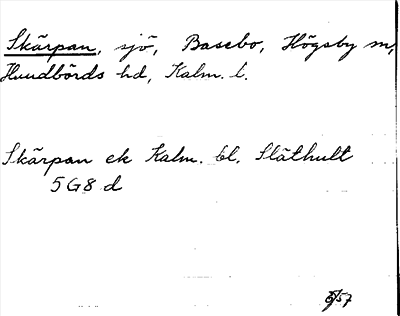 Skärpan, sjö, Basebo, Högsby sn,
Handbörds hd, Kalm. l.
Skärpan ek Kalm. bl. Släthult
5G8d